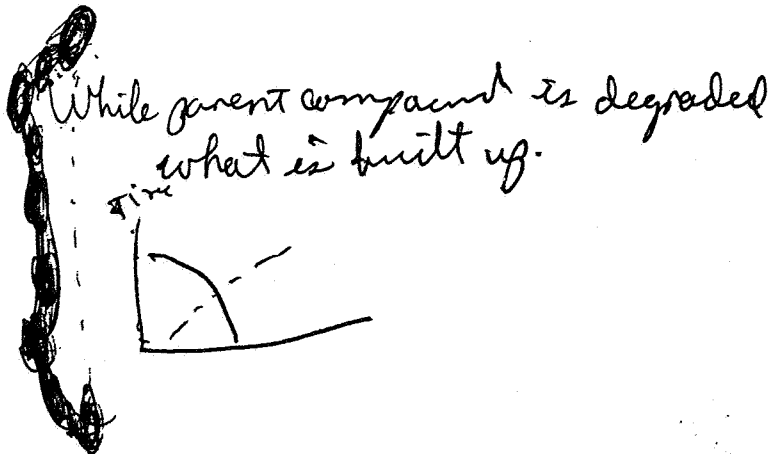 While parent compound is degraded
what is built up.
Time